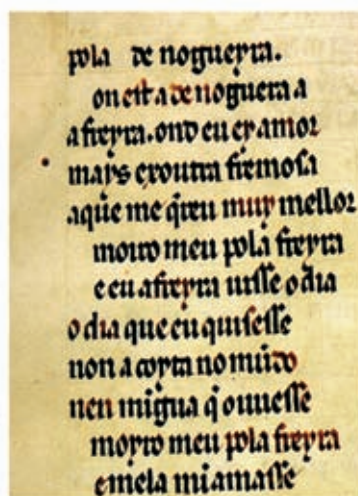 pola de nogueyra.
on est a de noguera a
a freyra. ond eu ey amor
mays exoutra fremosa
aque me q̄reu muy mellor
moiro meu pola freyra
e eu a freyra uisse o dia
o dia que eu quisesse
non a coyta no mūdo
nen migua q̄ ouuesse
moyro meu pola freyra
e mela mi amasse